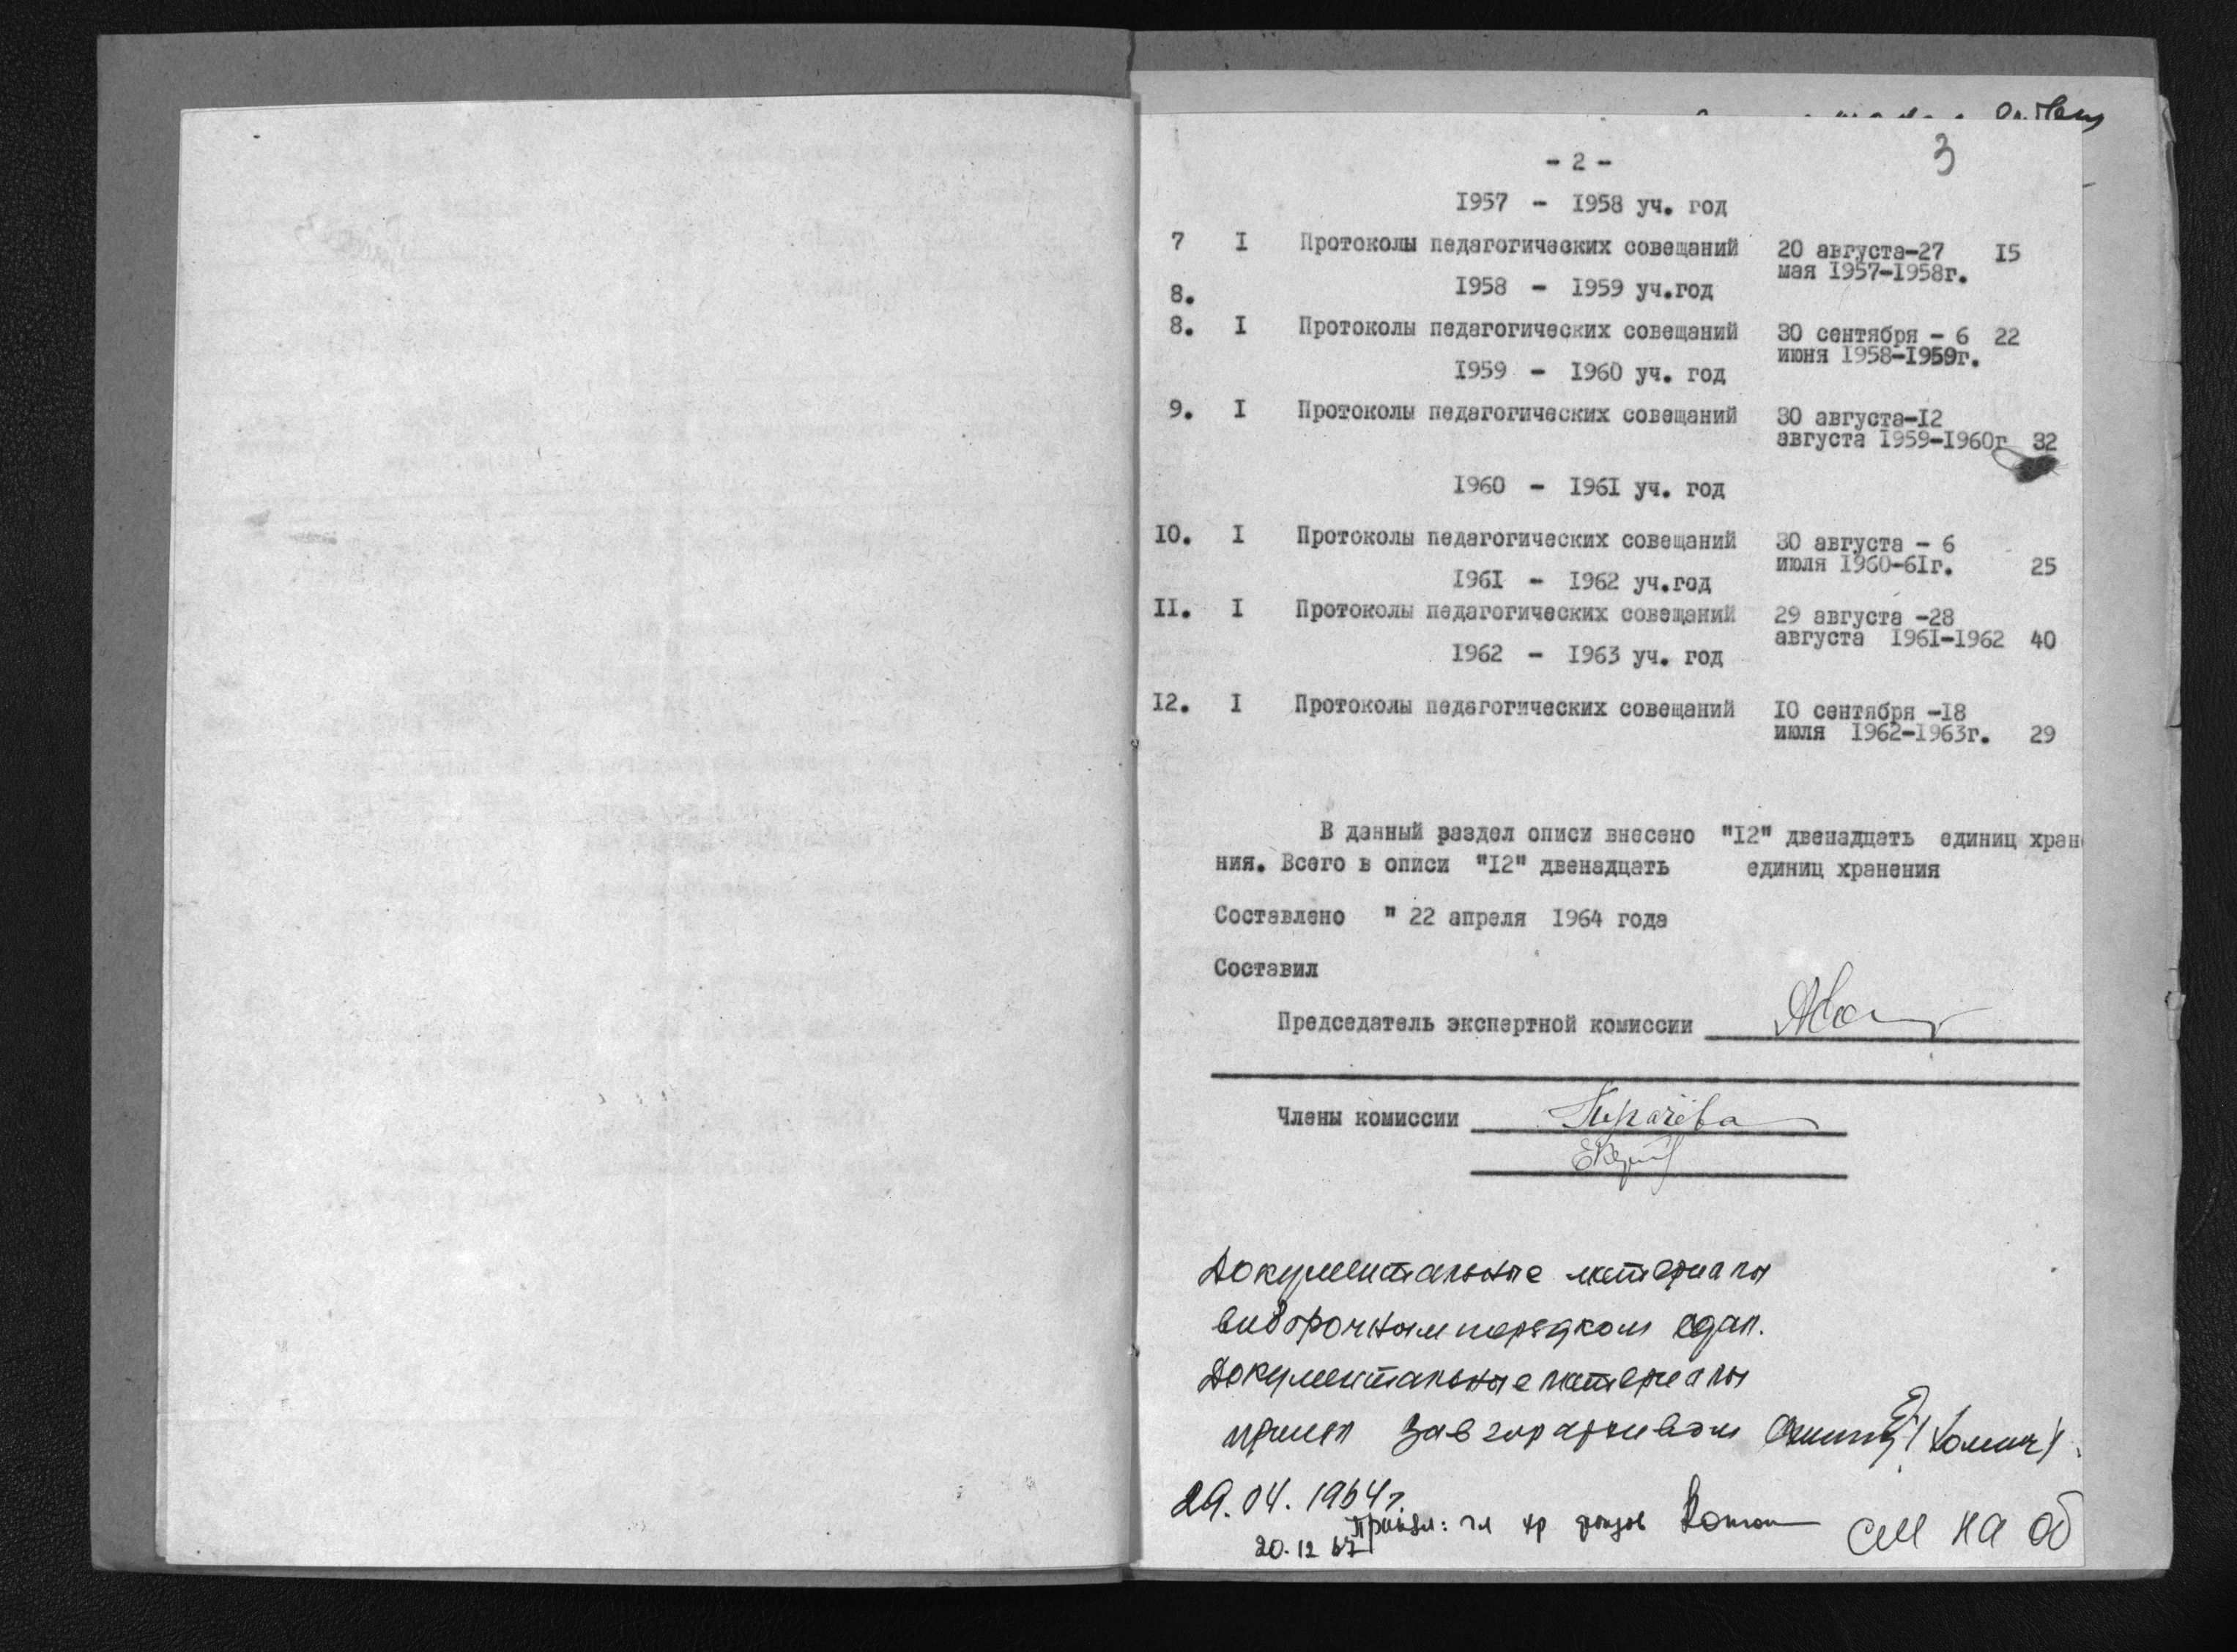 3
- 2 -
1957 - 1958 уч. год
7 I Протоколы педагогических совещаний 20 августа-27 15
мая 1957-1958г.
8. 1958 - 1959 уч.год
8. I Протоколы педагогических совещаний 30 сентября - 6 22
июня 1958-1959г.
1959 - 1960 уч. год
9. I Протоколы педагогических совещаний 30 августа-12
августа 1959-1960г 32
1960 - 1961 уч. год
10. I Протоколы педагогических совещаний 30 августа - 6
июля 1960-61г. 25
1961 - 1962 уч.год
11. I Протоколы педагогических совещаний 29 августа -28
августа 1961-1962 40
1962 - 1963 уч. год
12. I Протоколы педагогических совещаний 10 сентября -18
июля 1962-1963г. 29
В данный раздел описи внесено "12" двенадцать единиц хране
ния. Всего в описи "12" двенадцать единиц хранения
Составлено " 22 апреля 1964 года
Составил
Председатель экспертной комиссии
Члены комиссии
Документальные материалы
выборочным порядком сдал.
Документальные материалы
принял Зав горархивом
29.04.1964г.
Принял: гл хр фондов
20.12 67
см на об